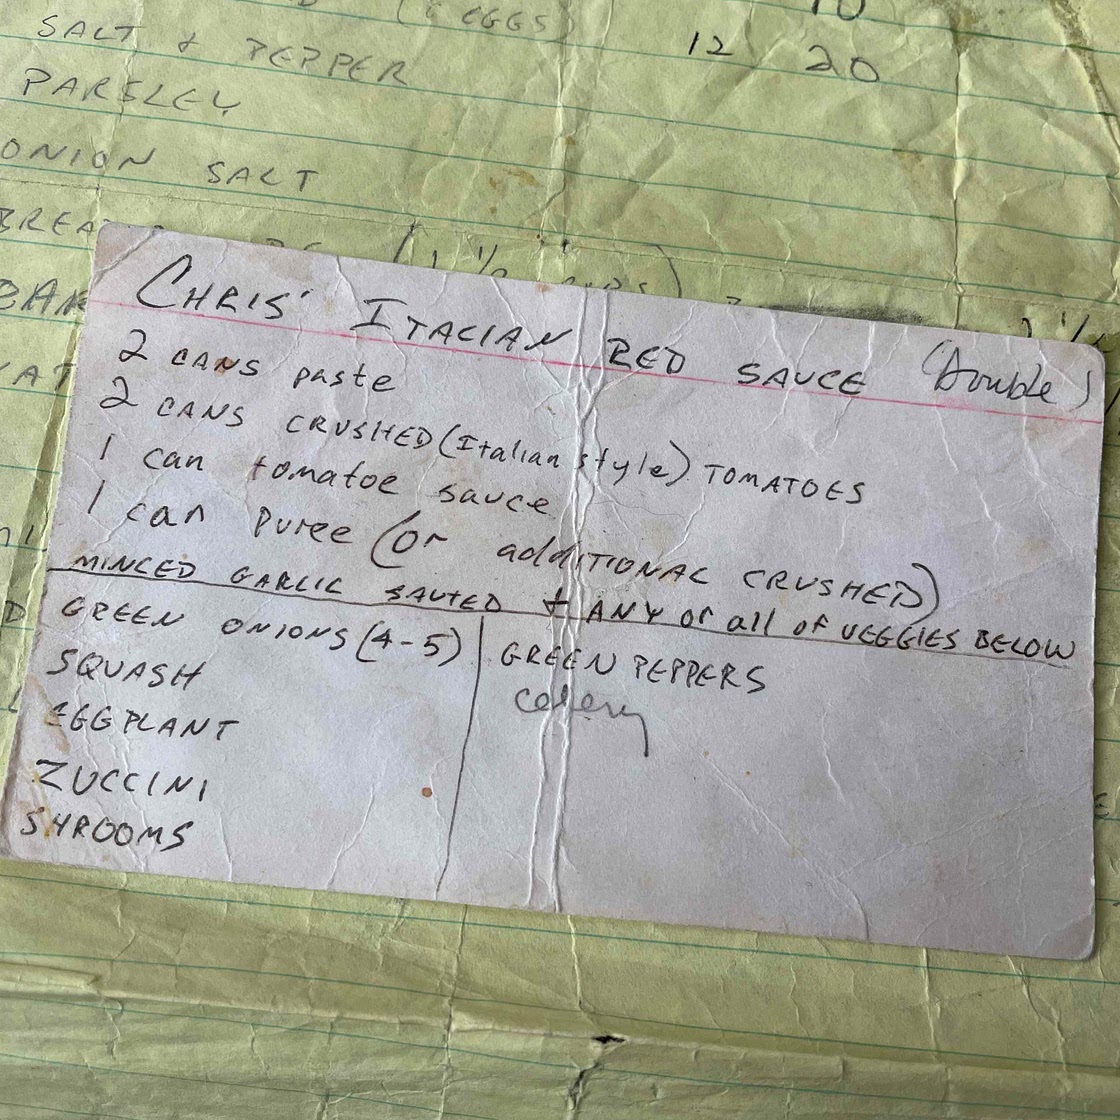 (6 EGGS) 10
SALT & PEPPER 12 20
PARSLEY
ONION SALT
CHRIS' ITALIAN RED SAUCE (Double)
2 CANS paste
2 CANS CRUSHED (Italian style) TOMATOES
1 can tomatoe sauce
1 can puree (or additIONAL CRUSHED)
MINCED GARLIC SAUTED + ANY or all of VEGGIES BELOW
GREEN ONIONS (4-5)
SQUASH
EGGPLANT
ZUCCINI
SHROOMS
GREEN PEPPERS
celery